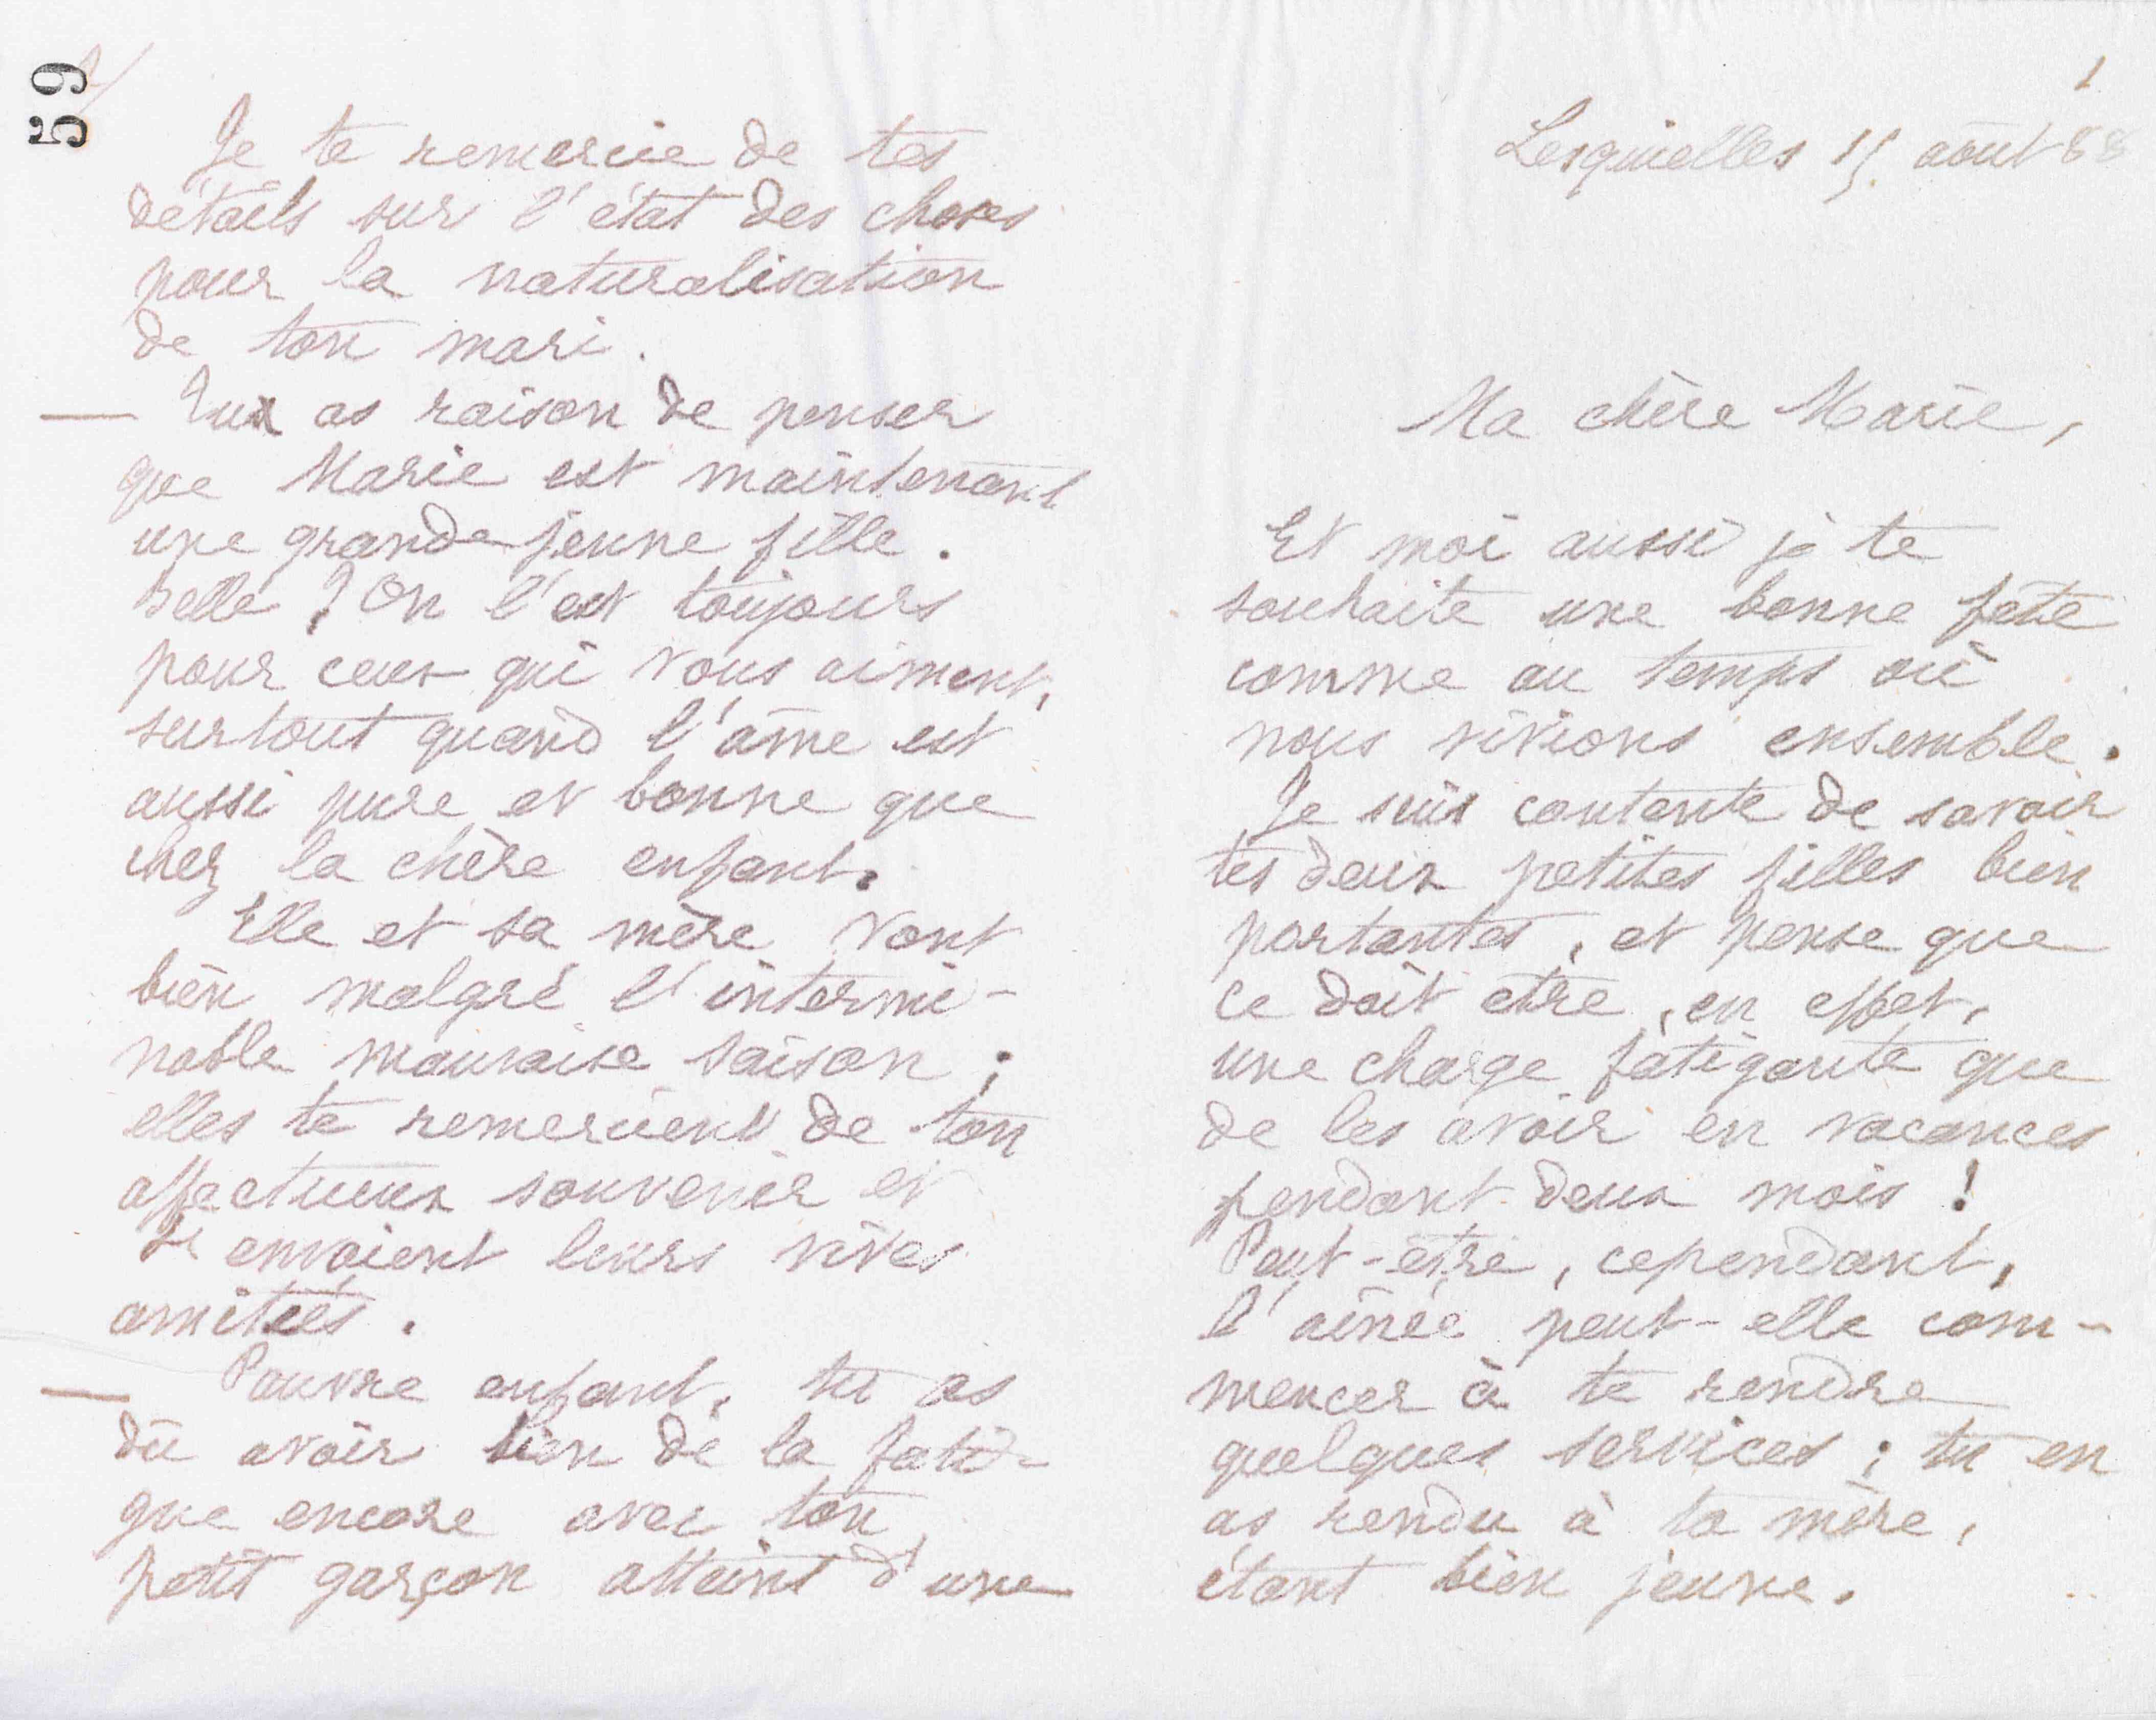 1
Lesquielles 15 août 88
Ma chère Marie,
Et moi aussi je te
souhaite une bonne fête
comme au temps où
nous vivions ensemble.
Je suis contente de savoir
tes deux petites filles bien
portantes, et pense que
ce doit etre, en effet,
une charge fatigante que
de les avoir en vacances
pendant deux mois !
Peut-etre, cependant,
l'aînée peut-elle com-
mencer à te rendre
quelques services ; tu en
as rendu à ta mère,
étant bien jeune.
59
Je te remercie de tes
détails sur l'état des choses
pour la naturalisation
de ton mari.
— Tu as raison de penser
que Marie est maintenant
une grande jeune fille.
Belle ? On l'est toujours
pour ceux qui vous aiment,
surtout quand l'âme est
aussi pure et bonne que
chez la chère enfant.
Elle et sa mère vont
bien malgré l'intermi-
nable mauvaise saison ;
elles te remercient de ton
affectueux souvenir et
t'envoient leurs vives
amitiés.
— Pauvre enfant, tu as
dû avoir bien de la fati-
gue encore avec ton
petit garçon atteint d'une